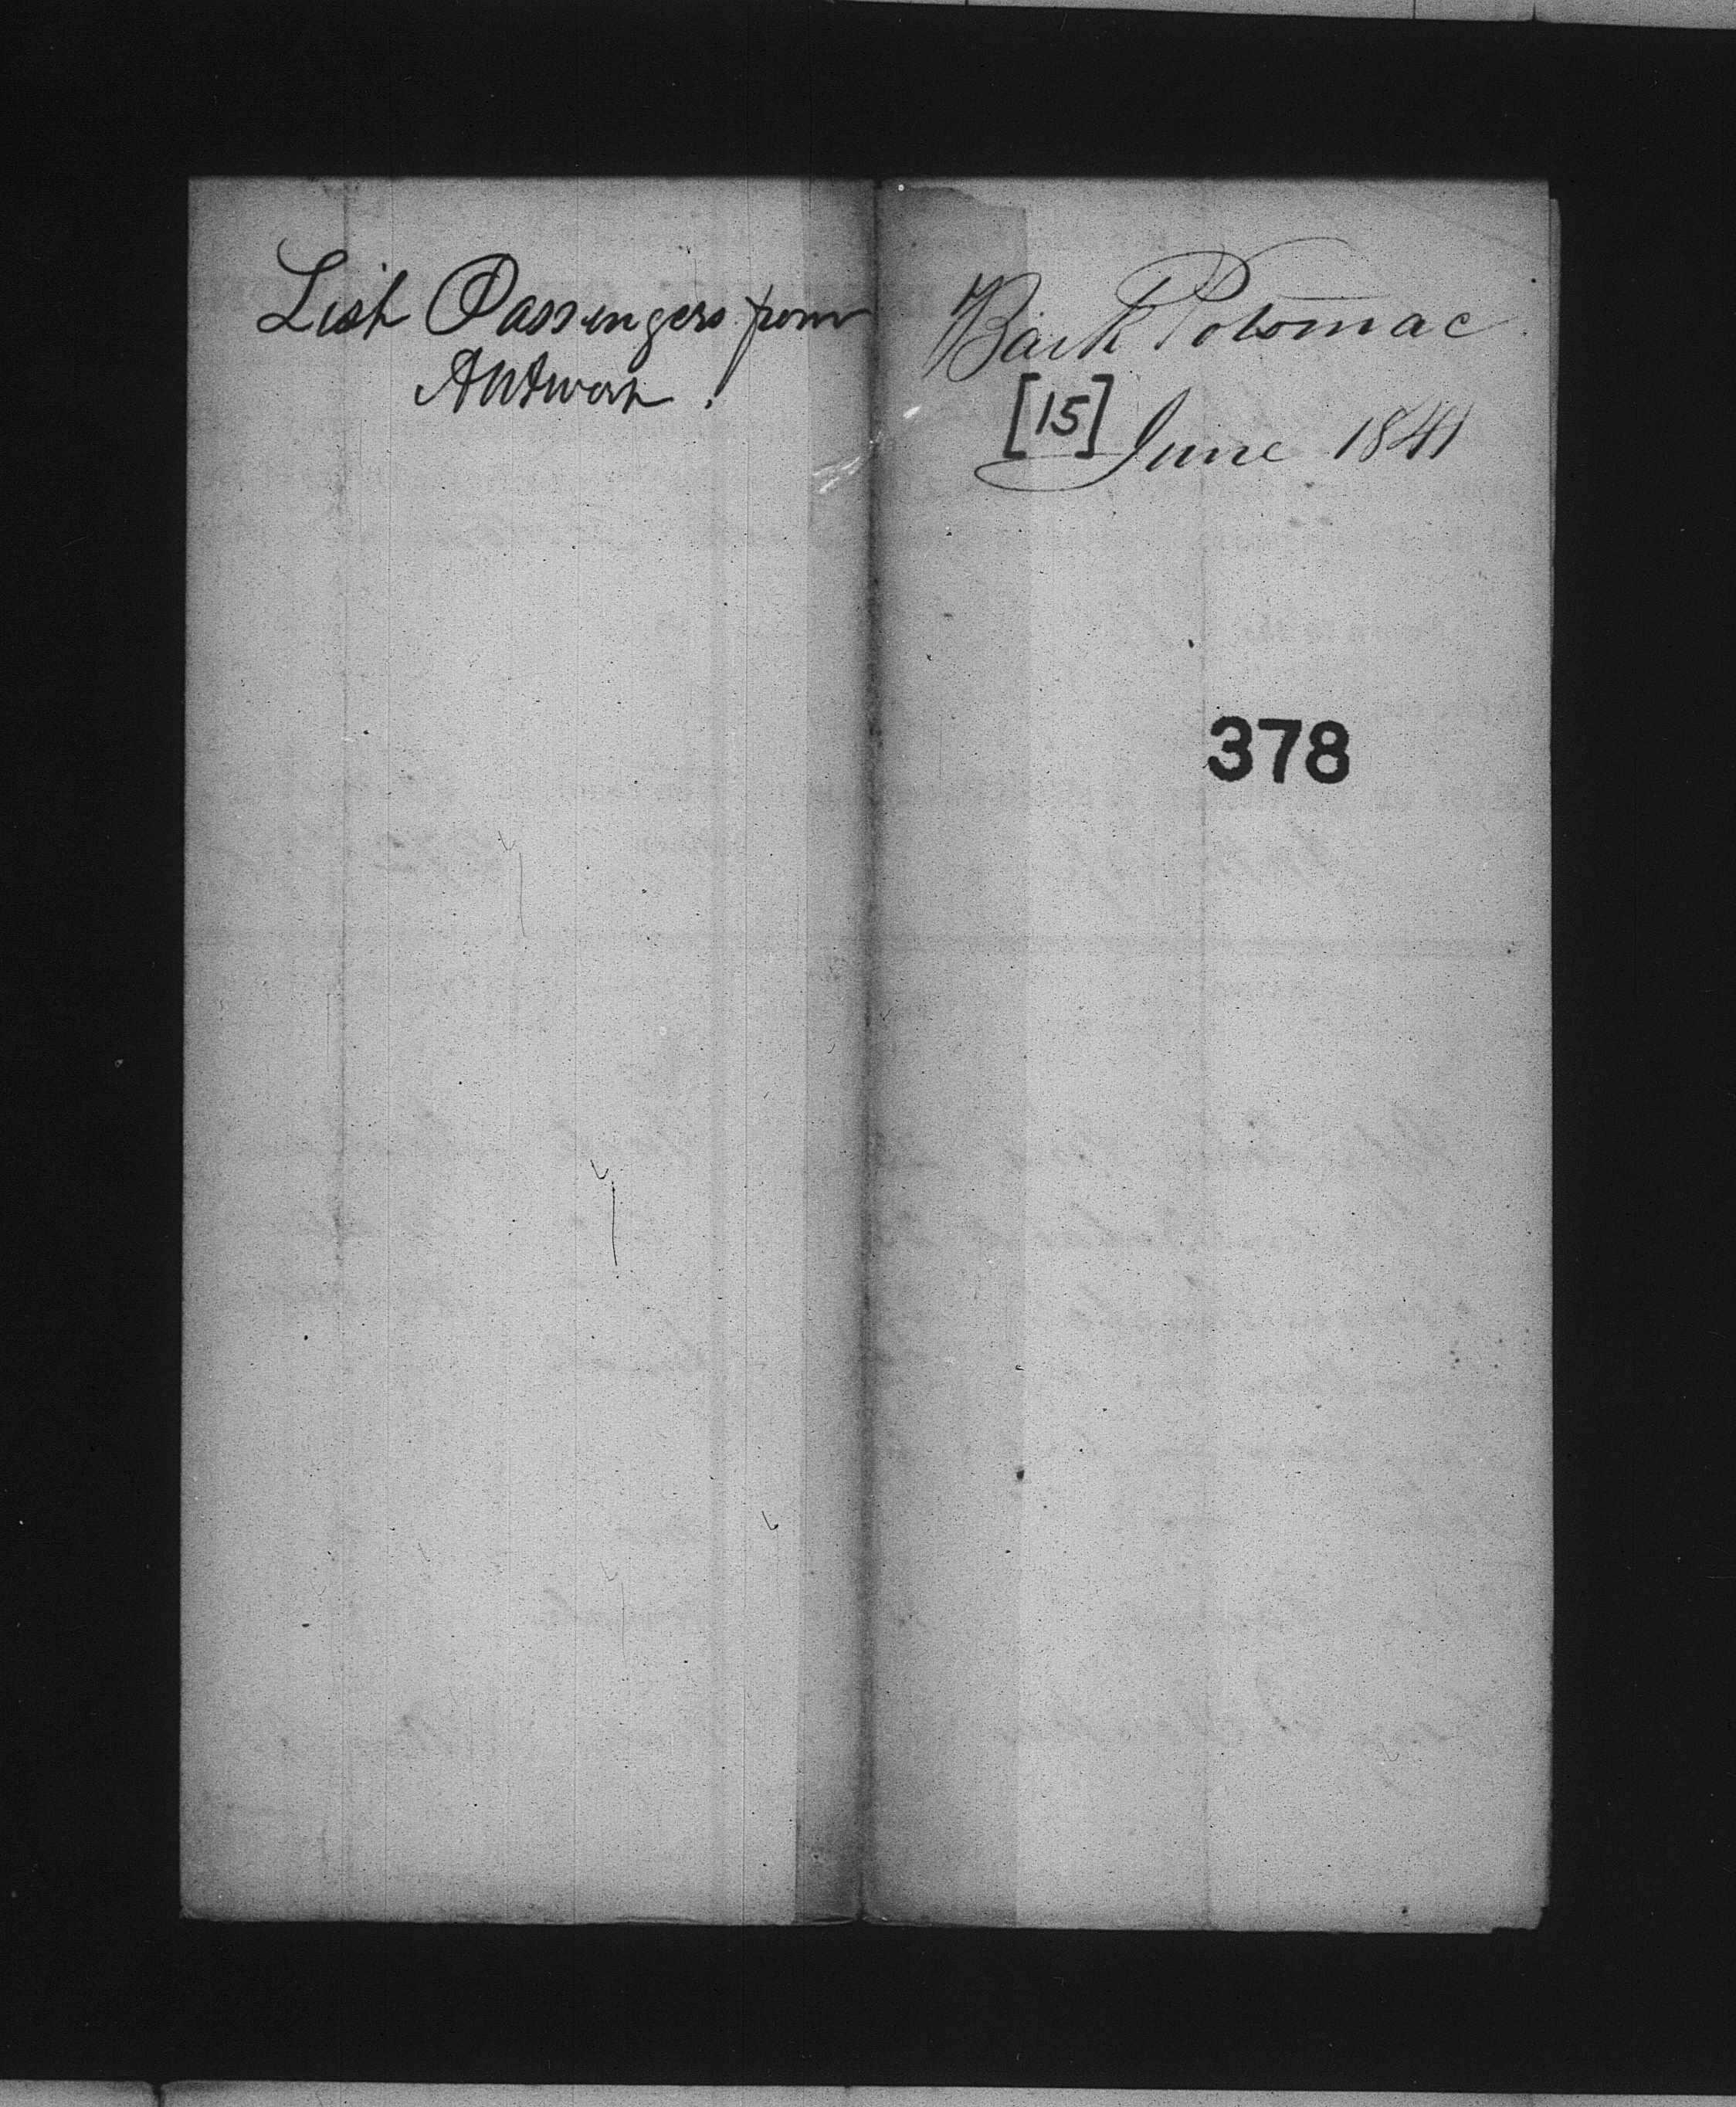 List Passengers from
Antwerp.
Bark Potomac
[15] June 1841
378